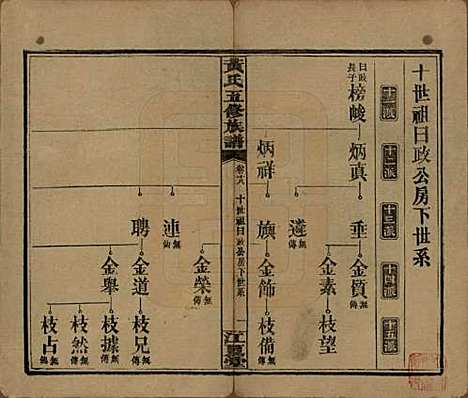 十世祖日政公房下世系
十一派
十二派
十三派
十四派
十五派
日政長子
榜峻
炳真
垂
金質 無傳
金素
枝望
炳祥
違 無傳
旗
金飾
枝備 無傳
黃氏五修族譜
卷十八
十世祖日政公房下世系
江夏堂
金榮 無傳
連 無傳
聘
金道
枝兄 無傳
金舉
枝據 無傳
枝然 無傳
枝占 無傳